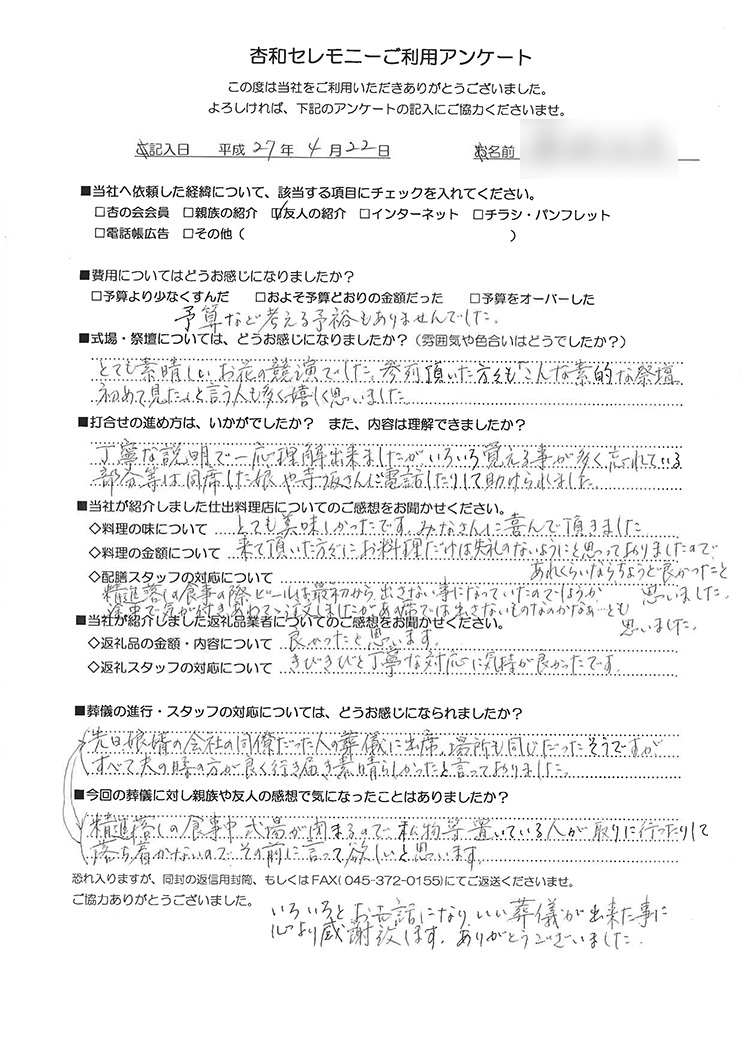 杏和セレモニーご利用アンケート
この度は当社をご利用いただきありがとうございました。
よろしければ、下記のアンケートの記入にご協力くださいませ。
ご記入日 平成 27 年 4 月 22 日 お名前
■当社へ依頼した経緯について、該当する項目にチェックを入れてください。
□杏の会会員 □親族の紹介 ☑友人の紹介 □インターネット □チラシ・パンフレット
□電話帳広告 □その他 ( )
■費用についてはどうお感じになりましたか？
□予算より少なくすんだ □およそ予算どおりの金額だった □予算をオーバーした
予算など考える予裕もありませんでした。
■式場・祭壇については、どうお感じになりましたか？(雰囲気や色合いはどうでしたか？)
とても素晴しいお花の競演でした。参列頂いた方々も「こんな素的な祭壇
初めて見た」と言う人も多く嬉しく思いました
■打合せの進め方は、いかがでしたか？ また、内容は理解できましたか？
丁寧な説明で一応理解出来ましたがいろいろ覚える事が多く忘れている
部分等は同席した娘や さんに電話したりして助けられました。
■当社が紹介しました仕出料理店についてのご感想をお聞かせください。
◇料理の味について とても美味しかったです。みなさんに喜んで頂きました
◇料理の金額について 来て頂いた方々にお料理だけは失礼のないようにと思っておりましたので
あれくらいならちょうど良かったと
◇配膳スタッフの対応について 思いました。
精進落しの食事の際ビールは最初から出さない事になっていたのでしょうか
途中で気が付きあわてて注文しましたがあの席では出さないものなのかなぁ…とも
思いました。
■当社が紹介しました返礼品業者についてのご感想をお聞かせください。
◇返礼品の金額・内容について 良かったと思います。
◇返礼スタッフの対応について きびきびと丁寧な対応に気持が良かったです。
■葬儀の進行・スタッフの対応については、どうお感じになられましたか？
先日娘婿の会社の同僚だった人の葬儀に出席、場所も同じだったそうですが
すべて夫の時の方が良く行き届き素晴らしかったと言っておりました。
■今回の葬儀に対し親族や友人の感想で気になったことはありましたか？
精進落しの食事中式場が閉まるので、私物等置いている人が取りに行ったりして
落ち着かないので、その前に言って欲しいと思います。
恐れ入りますが、同封の返信用封筒、もしくはFAX(045-372-0155)にてご返送くださいませ。
ご協力ありがとうございました。
いろいろとお世話になり、いい葬儀が出来た事に
心より感謝致します。ありがとうございました。